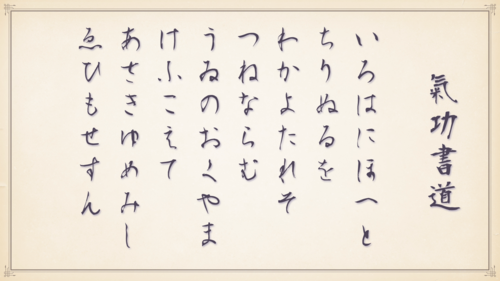 氣功書道
いろはにほへと
ちりぬるを
わかよたれそ
つねならむ
うゐのおくやま
けふこえて
あさきゆめみし
ゑひもせすん